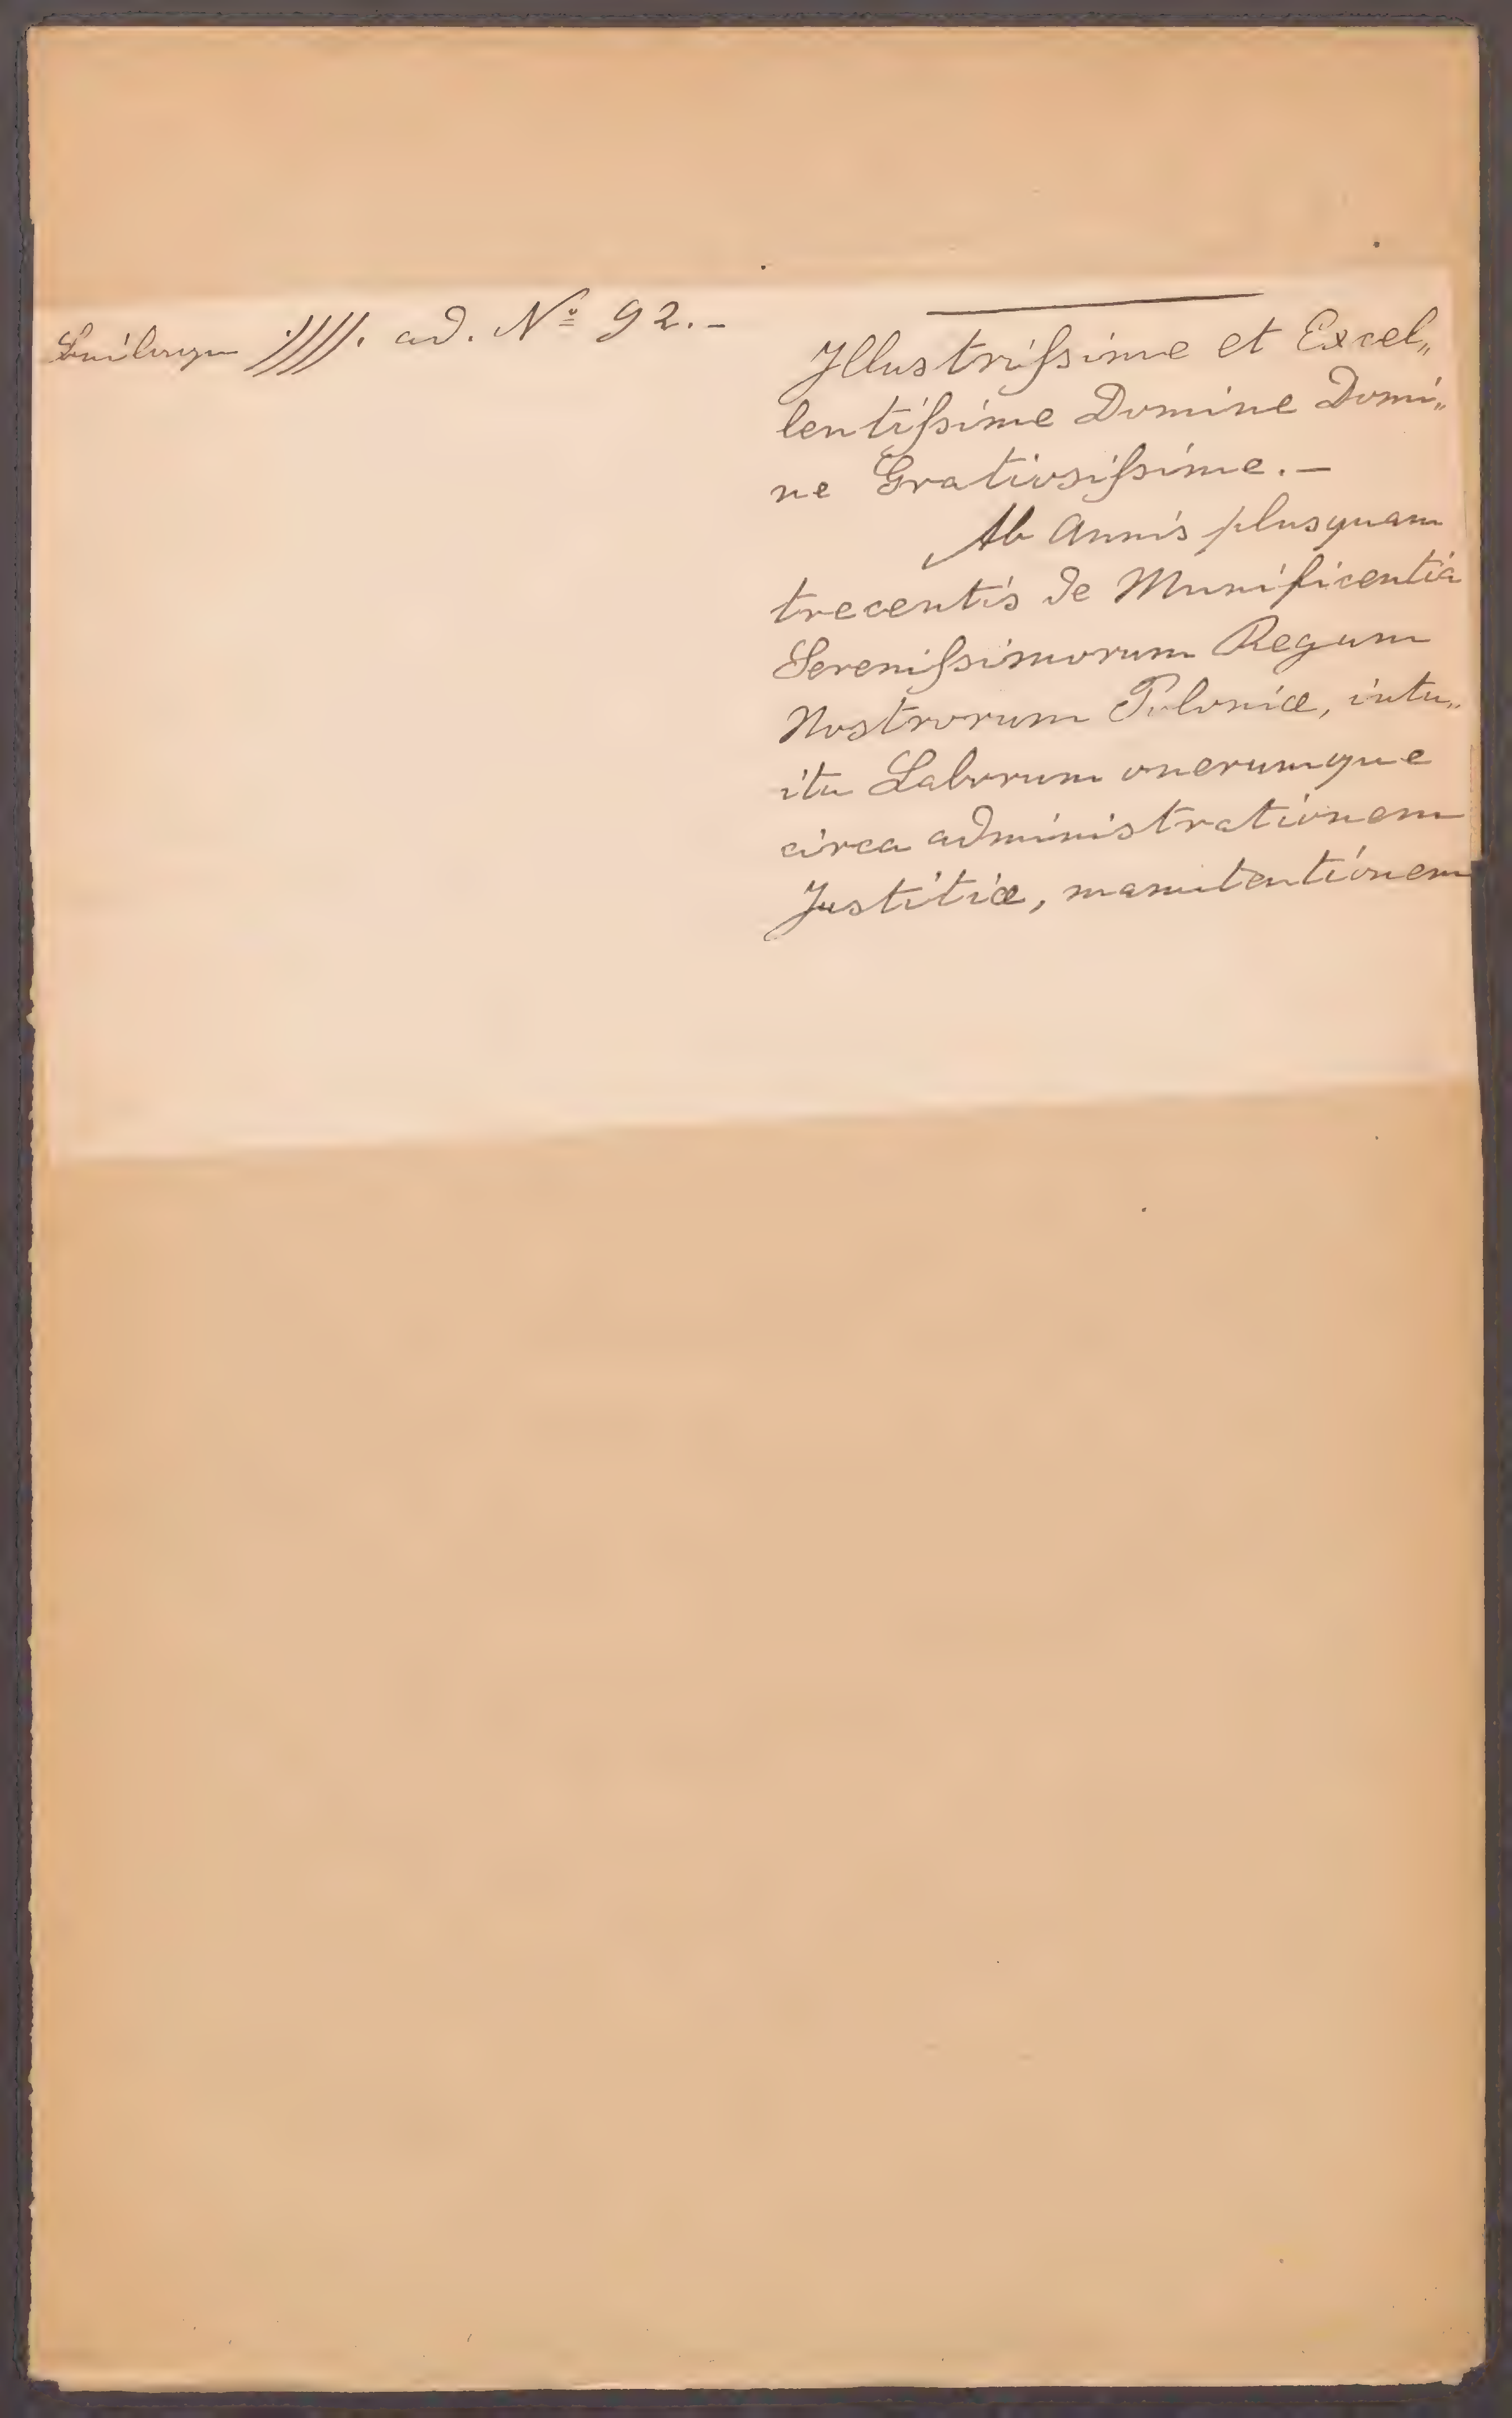 Beilage ////. ad. Nº 92.-
Illustrißime et Excel„
lentißime Domine Domi„
ne Gratiosißime.-
Ab Annis plusquam
trecentis de Munificentia
Serenißimorum Regum
Nostrorum Poloniæ, intu„
itu Laborum onerumque
circa administrationem
Justitiæ, manutentionem